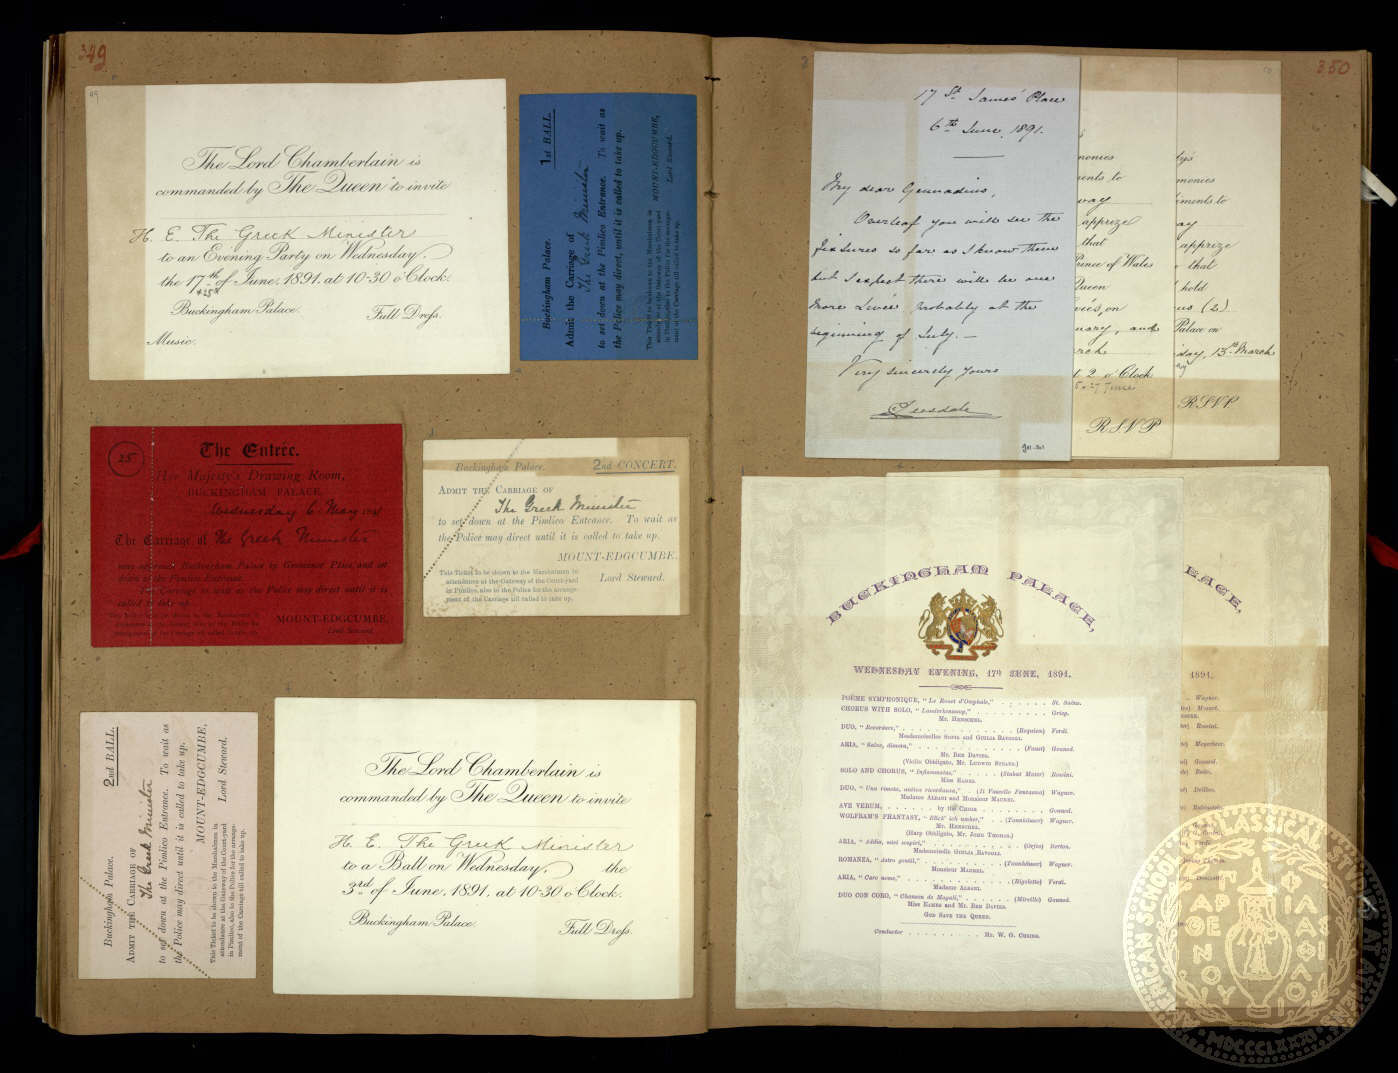 349
The Lord Chamberlain is
commanded by The Queen to invite
H. E. The Greek Minister
to an Evening Party on Wednesday,
the 17th of June, 1891, at 10-30 o'Clock.
Buckingham Palace.
Full Dress.
Music.
1st BALL.
Buckingham Palace.
Admit the Carriage of
The Greek Minister
to set down at the Pimlico Entrance. To wait as
the Police may direct, until it is called to take up.
MOUNT-EDGCUMBE,
Lord Steward.
25
The Entrée.
Her Majesty's Drawing Room,
BUCKINGHAM PALACE,
Wednesday 6 May 1891
The Carriage of The Greek Minister
may approach Buckingham Palace by Grosvenor Place, and set
down at the Pimlico Entrance.
The Carriage to wait as the Police may direct until it is
called to take up.
MOUNT-EDGCUMBE,
Lord Steward.
Buckingham Palace.
2nd CONCERT.
ADMIT THE CARRIAGE OF
The Greek Minister
to set down at the Pimlico Entrance. To wait as
the Police may direct until it is called to take up.
MOUNT-EDGCUMBE,
Lord Steward.
This Ticket to be shown to the Marshalmen in
attendance at the Gateway of the Court-yard
in Pimlico, also to the Police for the arrange-
ment of the Carriage till called to take up.
2nd BALL.
Buckingham Palace.
ADMIT THE CARRIAGE OF
The Greek Minister
to set down at the Pimlico Entrance. To wait as
the Police may direct until it is called to take up.
MOUNT-EDGCUMBE,
Lord Steward.
This Ticket to be shown to the Marshalmen in
attendance at the Gateway of the Court-yard
in Pimlico, also to the Police for the arrange-
ment of the Carriage till called to take up.
The Lord Chamberlain is
commanded by The Queen to invite
H. E. The Greek Minister
to a Ball on Wednesday, the
3rd of June, 1891, at 10-30 o'Clock.
Buckingham Palace.
Full Dress.
350
17 St. James' Place
6th June, 1891.
My dear Gennadius,
Overleaf you will see the
fixtures so far as I know them
but I expect there will be one
more Levée probably at the
beginning of July.—
Very sincerely yours
monies
ments to
way
apprize
that
Prince of Wales
Queen
on
and
2 o'Clock
R.S.V.P
ty's
monies
iments to
ay
apprize
that
hold
(2)
Palace on
day, 13th March
R.S.V.P.
BUCKINGHAM PALACE,
WEDNESDAY EVENING, 17th JUNE, 1891.
POÈME SYMPHONIQUE, "Le Rouet d'Omphale," St. Saëns.
CHORUS WITH SOLO, "Landerkennung," Grieg.
Mr. HENSCHEL.
DUO, "Recordare," (Requiem) Verdi.
Mesdemoiselles SOFIA and GIULIA RAVOGLI.
ARIA, "Salve, dimora," (Faust) Gounod.
Mr. BEN DAVIES.
(Violin Obbligato, Mr. LUDWIG STRAUS.)
SOLO AND CHORUS, "Inflammatus," (Stabat Mater) Rossini.
Miss EAMES.
DUO, (Il Vascello Fantasma) Wagner.
Madame ALBANI and Monsieur MAUREL.
AVE VERUM, by the CHOIR Gounod.
WOLFRAM'S PHANTASY, "Blick' ich umher," (Tannhäuser) Wagner.
Mr. HENSCHEL.
(Harp Obbligato, Mr. JOHN THOMAS.)
ARIA, (Orfeo)
Mademoiselle GIULIA RAVOGLI.
ROMANZA, "Astro gentil," (Tannhäuser) Wagner.
Monsieur MAUREL.
ARIA, "Caro nome," (Rigoletto) Verdi.
Madame ALBANI.
DUO CON CORO, "Chanson de Magali," (Mireille) Gounod.
Miss EAMES and Mr. BEN DAVIES.
GOD SAVE THE QUEEN.
Conductor Mr. W. G. CUSINS.
LACE,
1891.
Wagner.
Mozart.
Rossini.
Meyerbeer.
Gounod.
Delibes.
AMERICAN SCHOOL OF CLASSICAL STUDIES AT ATHENS
MDCCCLXXXI
ΠΑΡΘΕΝΟΥ ΦΙΑΛΑ ΦΙΛΑ